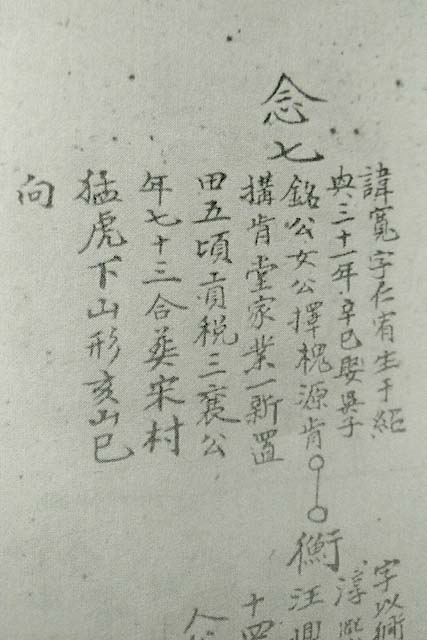 念七
諱寬字仁宥生于紹
興三十一年辛巳娶吳子
銘公女公擇槐源肯
搆肯堂家業一新置
田五頃貢稅三襃公
年七十三合葬宋村
猛虎下山形亥山巳
向
衡
字以
淳熙
汪
十四